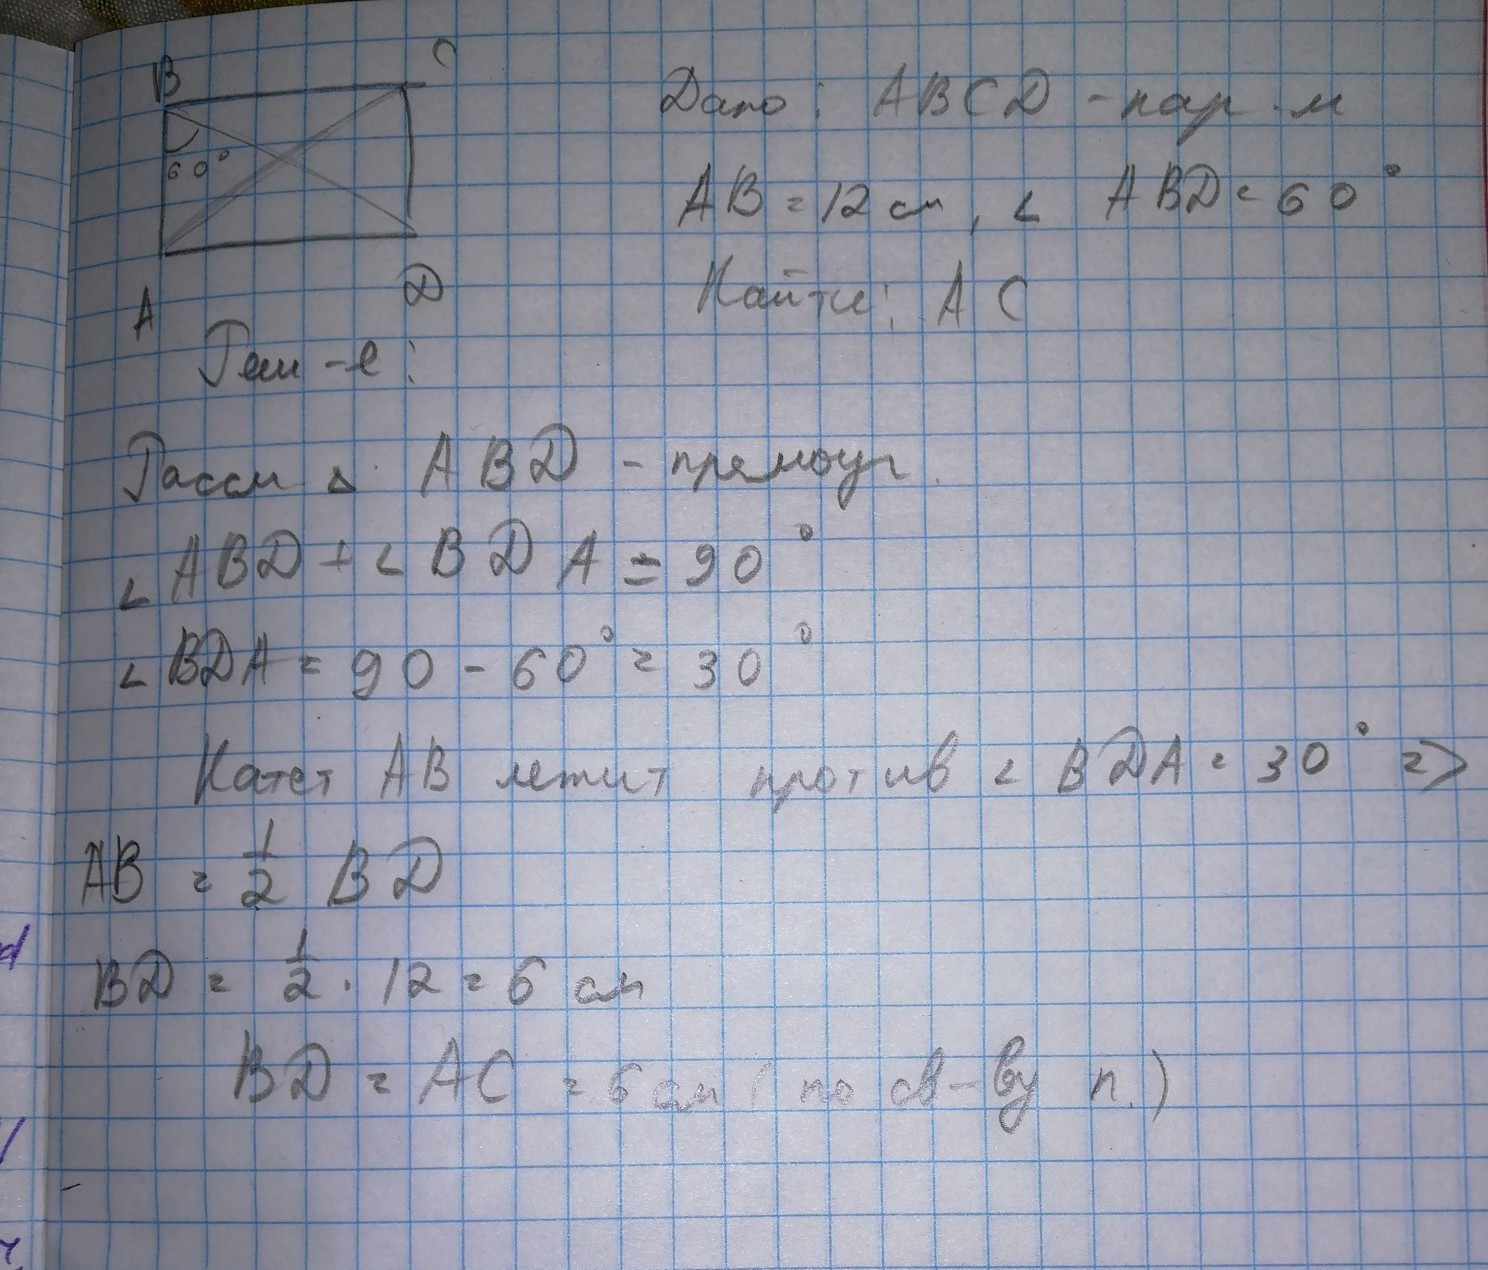 B
C
60°
A
D
Дано: ABCD - пар-м
AB = 12 см, ∠ ABD = 60°
Найти: AC
Реш-е:
Рассм △ ABD - прямоуг.
∠ABD + ∠BDA = 90°
∠BDA = 90 - 60° = 30°
Катет AB лежит против ∠BDA = 30° =>
AB = 1/2 BD
BD = 1/2 · 12 = 6 см
BD = AC = 6 см (по св-ву п.)